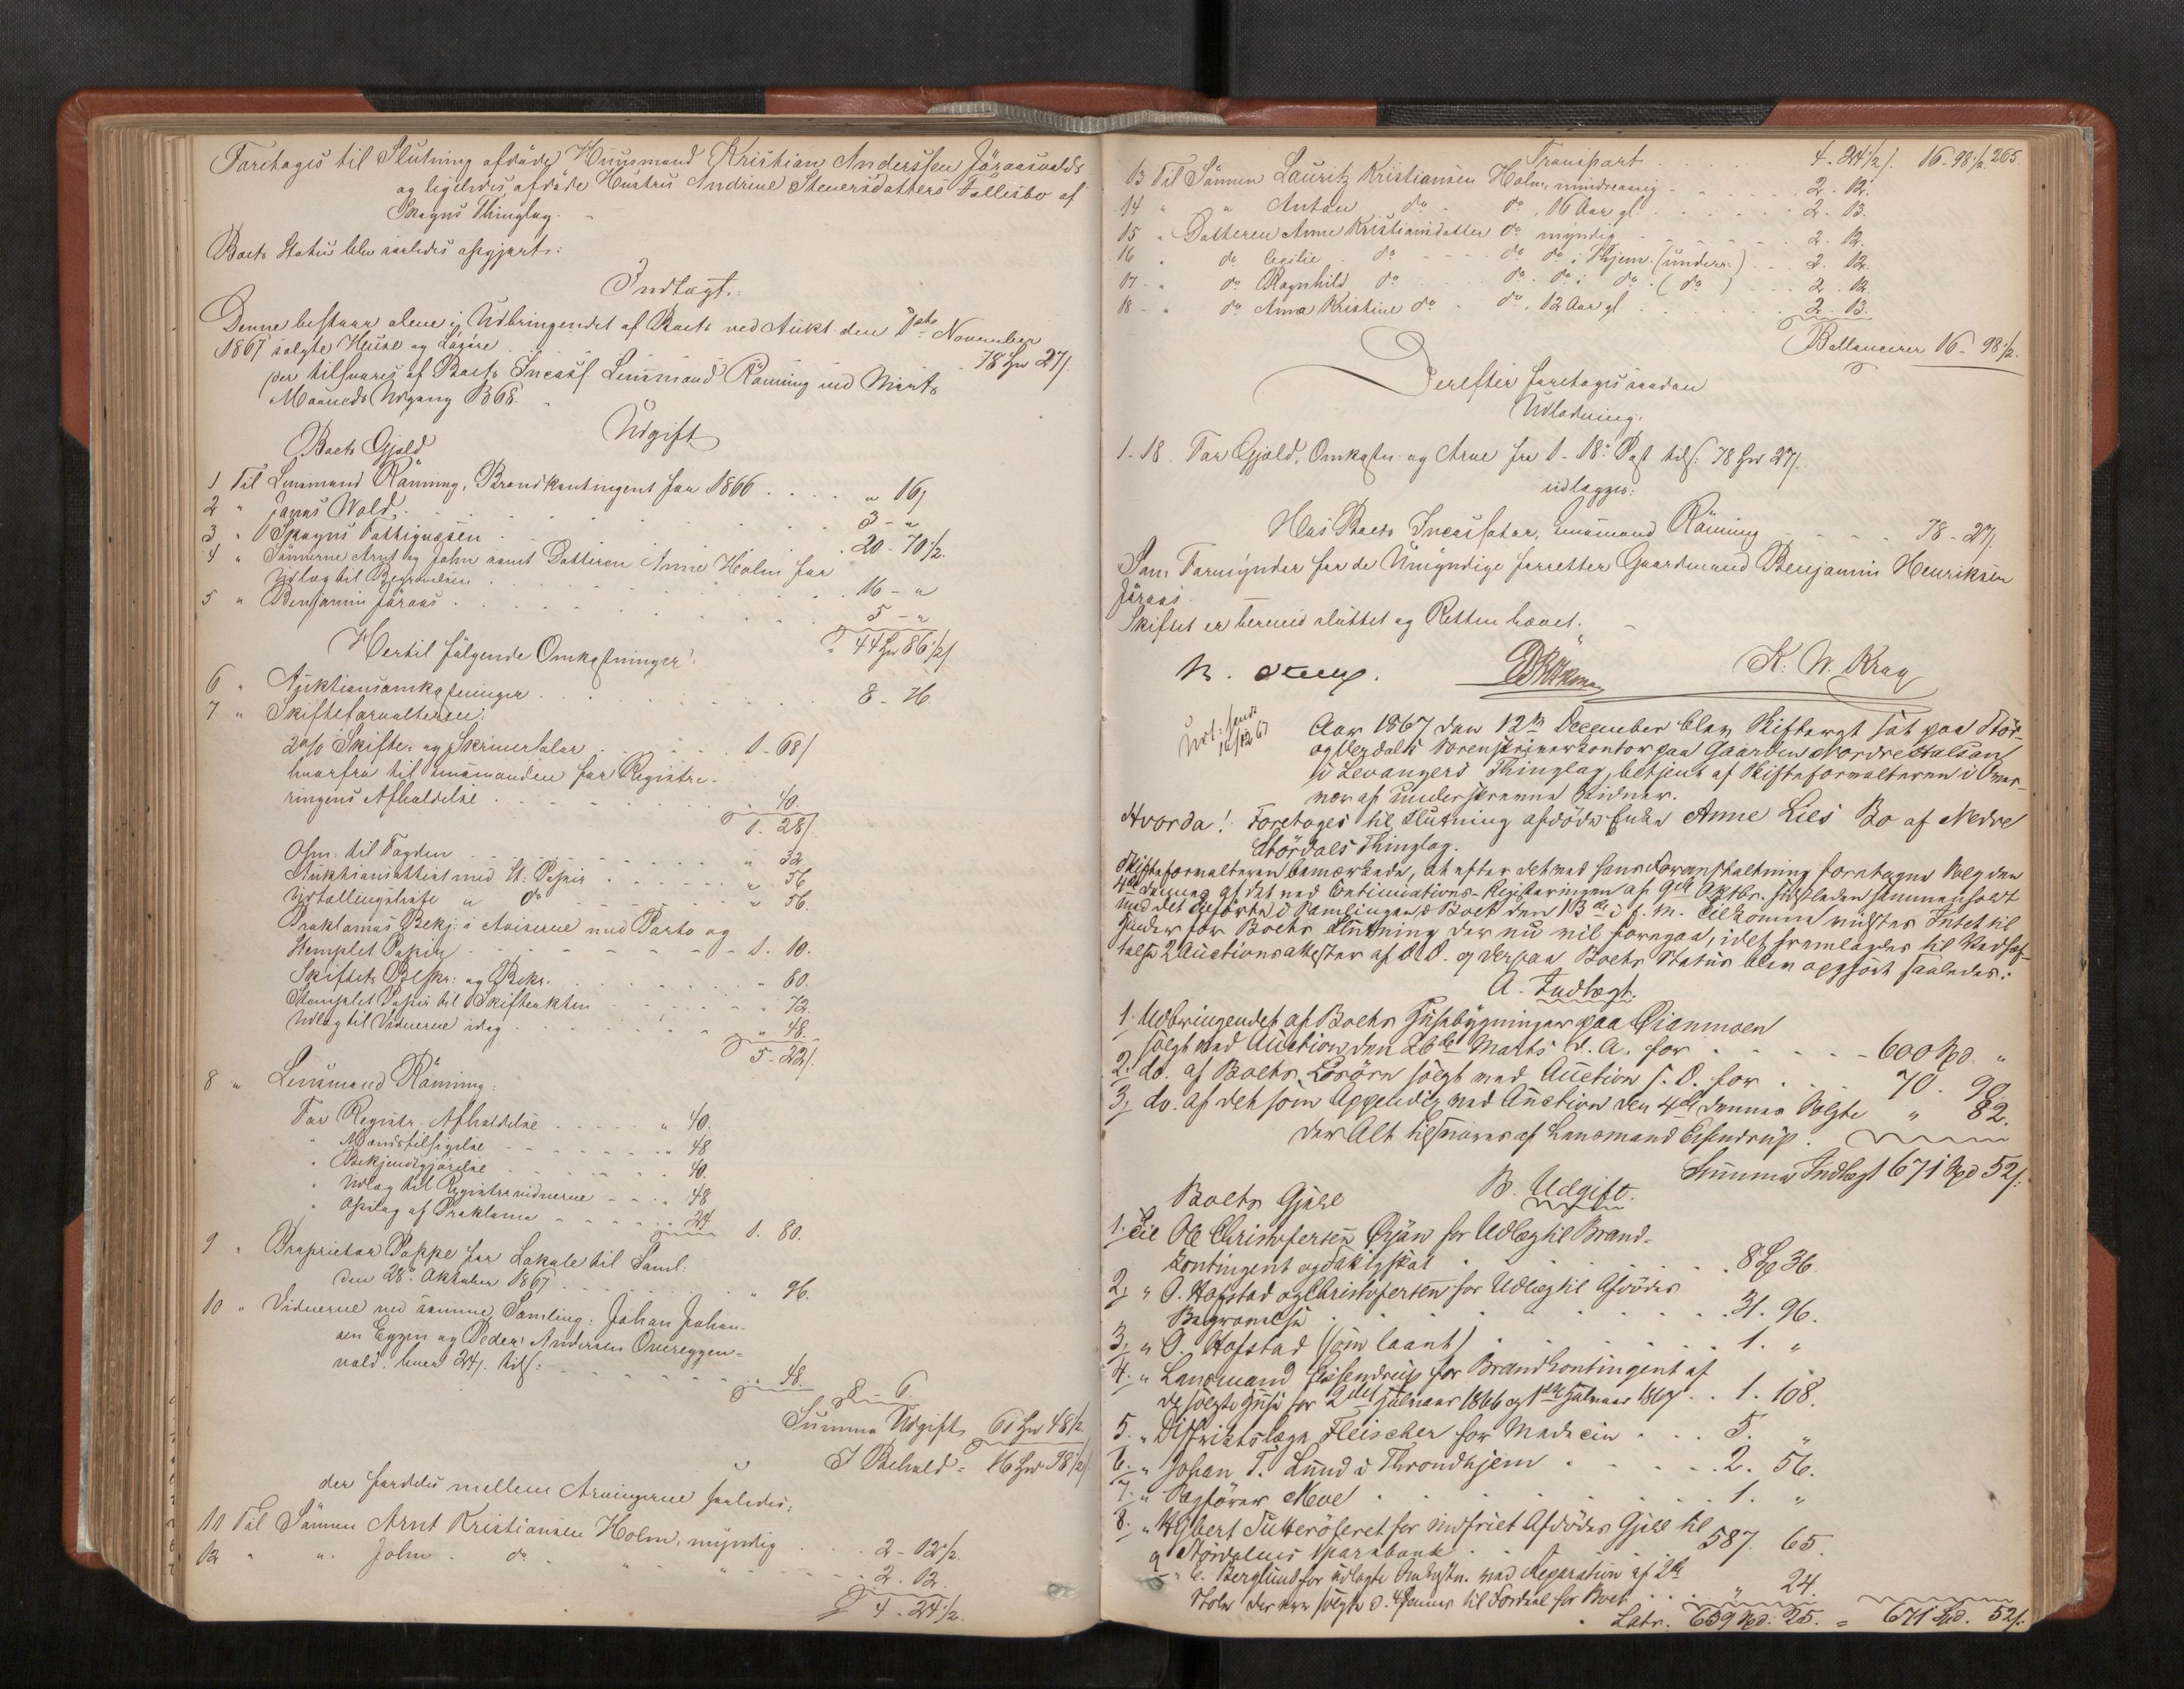 Foretages til Slutning afdøde Huusmand Kristian Anderssen Jøraasvalds
og ligeledes afdøde Hustru Andrine Steenersdatters Fællesbo af
Skogns Thinglag. -
Boets Status blev saaledes opgjort:
Indtægt.
Denne bestaar alene i Udbringendet af Boets ved Aukt. den 1ste November
1867 solgte Huse og Løsøre . . . 78 Spd 27 s.
der tilsvares af Boets Incass. Lensmand Rönning ved Marts
Maaneds Udgang 1868.
Udgift
Boets Gjæld
1 Til Lensmand Rönning, Brandkontingent for 1866 . . . . " 16 s
2 " Jonas Wold . . . 3 - "
3 " Skogns Fattigvæsen . . . 20 - 70 1/2.
4 " Sønnerne Arnt og John samt Datteren Anne Holm for
Udlæg til Begravelsen . . . 16 - "
5 " Benjamin Jøraas . . . 5 - "
44 Spd 86 1/2 s
Hertil følgende Omkostninger:
6 " Auktionsomkostninger . . . 8 - 16.
7 " Skifteforvalteren:
2 % Skifte- og Skriversalar . . . 1 - 68 s
hvorfra til Lensmanden for Registre-
ringens Afholdelse . . . " 40.
1. 28 s.
Osm. til Fogden . . . " 32
Auktionsattest med St: Papir . . . " 56
Udstallingsliste " do . . . " 56.
Proklamas Bekj: i Aviserne med Porto og
Stemplet Papir . . . 1. 10.
Skiftets Besk: og Bekr. . . . " 60.
Stemplet Papir til Skifteakten . . . " 72.
Udlæg til Vidnerne idag . . . " 48.
5 - 22 s.
8 " Lensmand Rönning:
For Registr. Afholdelse . . . " 40.
" Mandstilsigelse . . . " 48
" Bekjendtgjørelse . . . " 40.
" Udlæg til Registr.vidnerne . . . " 48
" Opslag af Proklama . . . " 24
1. 80.
9 " Proprietær Poppe for Lokale til Saml:
den 28de Oktober 1867 . . . " 96.
10 " Vidnerne ved samme Samling: Johan Johan-
sen Eggen og Peder Andersen Overeggen-
vald. hver 24 s. tils: . . . " 48.
8 - 6.
Summa Udgift 61 Spd 48 1/2.
I Behold = 16 Spd 98 1/2 s
der fordeles mellem Arvingerne saaledes:
11 Til Sønnen Arnt Kristiansen Holm, myndig . . . 2 - 12 1/2.
12 " " John - do . . . " . . . 2. 12.
4 - 24 1/2.
Transport . . . 4. 24 1/2 s. 16 - 98 1/2. 265.
13 Til Sønnen Lauritz Kristiansen Holm, mindreaarig . . . 2. 12.
14 " " Anton do - do, 16 Aar gl . . . 2. 13.
15 " Datteren Anne Kristiansdatter do myndig . . . 2. 12.
16 " do Cecilie do - - - do do i Thjem. (under.) . . . 2. 12.
17 - " do Ragnhild do . . . do. do i do. (do) . . . 2. 12.
18 - " do Anna Kristine do . do, 12 Aar gl . . . 2. 13.
Ballancerer 16 - 98 1/2.
Derefter foretages saadan
Udlodning.
1-18. For Gjæld, Omkostn. og Arve fra 1-18de Post tils: 78 Spd 27 s.
udlægges:
Hos Boets Incassator, Lensmand Rönning . . . 78 - 27 s.
Som Formynder for de Umyndige forretter Gaardmand Benjamin Henriksen
Jøraas. -
Skiftet er hermed sluttet og Retten hævet. -
K. W. Krag
Udl: sendt
16/12 67
Aar 1867 den 12te December blev Skifteret sat paa Stør-
og Værdals Sorenskriverkontor paa Gaarden Nordre Halsan
i Levangers Thinglag, betjent af Skifteforvalteren i Over-
vær af underskrevne Vidner.
Hvorda! Foretages til Slutning afdøde Enke Anne Lies Bo af Nedre
Størdals Thinglag.
Skifteforvalteren bemærkede, at efter det ved hans Foranstaltning foretagne Salg den
4de dennes af det ved Continuations-Registeringen af 9de Oktbr. sidstleden sammenholdt
med det Tilførte i Samlingen i Boet den 13de i f. M. Tilkomne mødtes Intet til
Hinder for Boets Slutning der nu vil foregaa, idet fremlagdes til Vedhæf-
telse 2 Auctionsattester af D. D. og derpaa Boets Status blev opgjort saaledes:
A. Indtægt.
1. Udbringendet af Boets Husebygninger paa Øianmoen
solgt ved Auction den 26de Marts d. A. for . . . 600 Spd. "
2. do. af Boets Løsøre solgt ved Auction s. D. for . . . 70. 90
3. do. af det som Appendix ved Auction den 4de dennes Solgte " 82.
der Alt tilsvares af Lensmand Eisendrup.
Summa Indtægt 671 Spd 52 s.
Boets Gjæld B. Udgift.
1. Til Ole Christofersen Øyan for Udlæg til Brand-
kontingent og Fattigskat . . . 8 Sp 36.
2. " O. Hofstad og Christofersen for Udlæg til Afdødes
Begravelse . . . 31. 96.
3. " O. Hofstad (som laant) . . . 1. "
4. " Lensmand Eisendrup for Brandkontingent af
de solgte Huse for 2det Halvaar 1866 og 1ste Halvaar 1867 . . 1. 108.
5. " Distriktslæge Fleischer for Medicin . . . 5. "
6. " Johan T. Lund i Throndhjem . . . 2. 56.
7. " Sagfører Moe . . . 1. "
8. " Størdalens Sparebank . . . 587. 65.
9 " E. Berglund for udlagte Omkostn. ved Reparation af 2de
Stole der ere solgte d. 4 dennes til Fordeel for Boet . . . " 24.
Latr. 639 Spd. 25. = 671 Spd. 52 s.